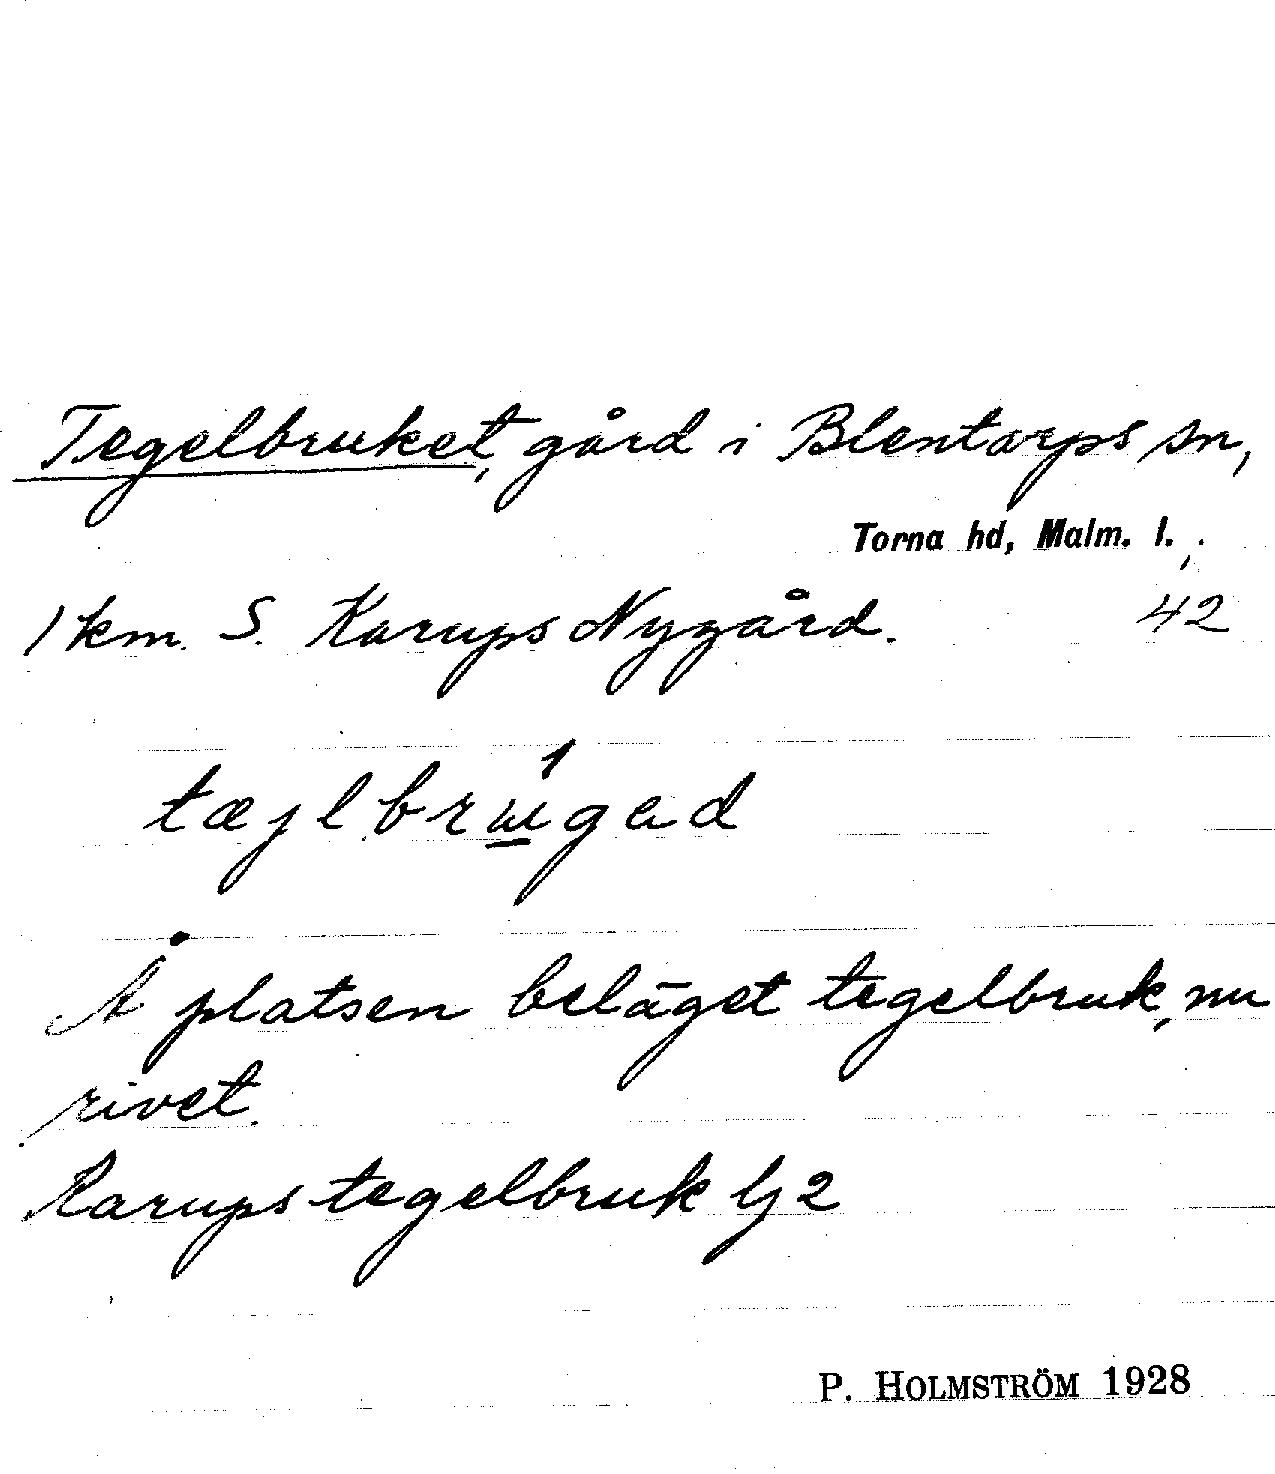 Tegelbruket, gård i Blentarps sn,
Torna hd, Malm. l.
1 km. S. Karups Nygård. 42
tæjlbrúgad
Å platsen beläget tegelbruk, nu
rivet.
Karups tegelbruk lj 2
P. HOLMSTRÖM 1928